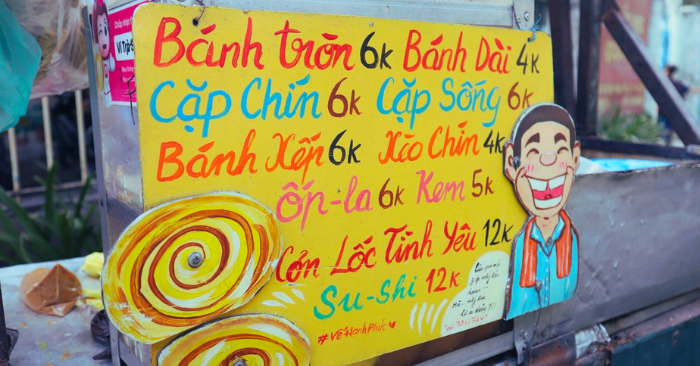 Bánh tròn 6K Bánh Dài 4K
Cặp Chín 6K Cặp Sống 6K
Bánh Xếp 6K Xèo Chín 4K
ốp-la 6K Kem 5K
Cơn Lốc Tình Yêu 12K
Su-shi 12K
#VéHạnhPhúc